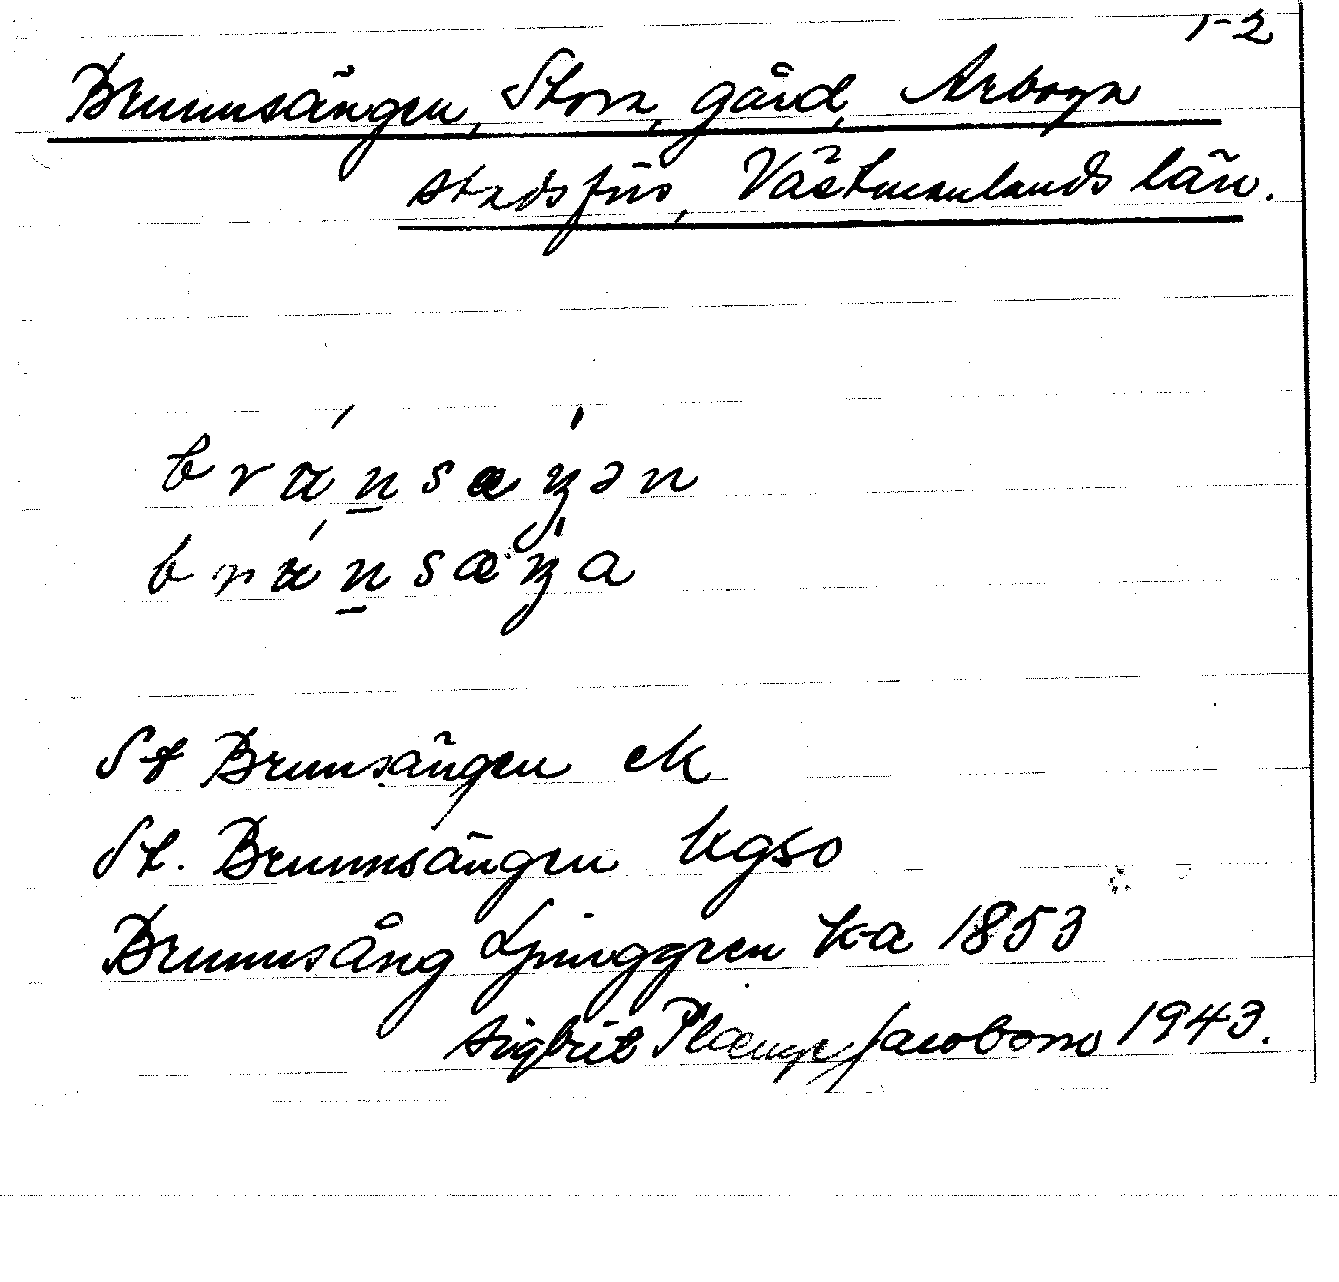 1-2
Brunnsängen, Stora, gård, Arboga
stadsförs, Västmanlands län.
St Brunsängen ek
St. Brunnsängen kgso
Brunnsäng Ljunggren k-a 1853
Sigbrit Plænge Jacobson 1943.